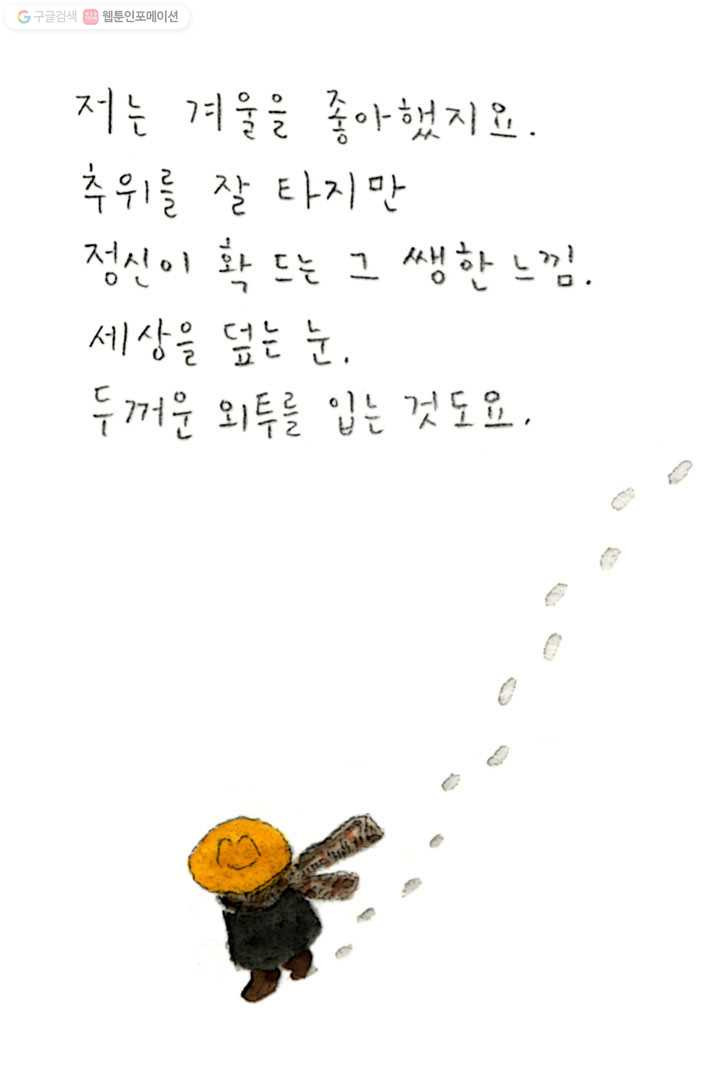 구글검색 웹툰인포메이션
저는 겨울을 좋아했지요.
추위를 잘 타지만
정신이 확 드는 그 쌩한 느낌.
세상을 덮는 눈.
두꺼운 외투를 입는 것도요.